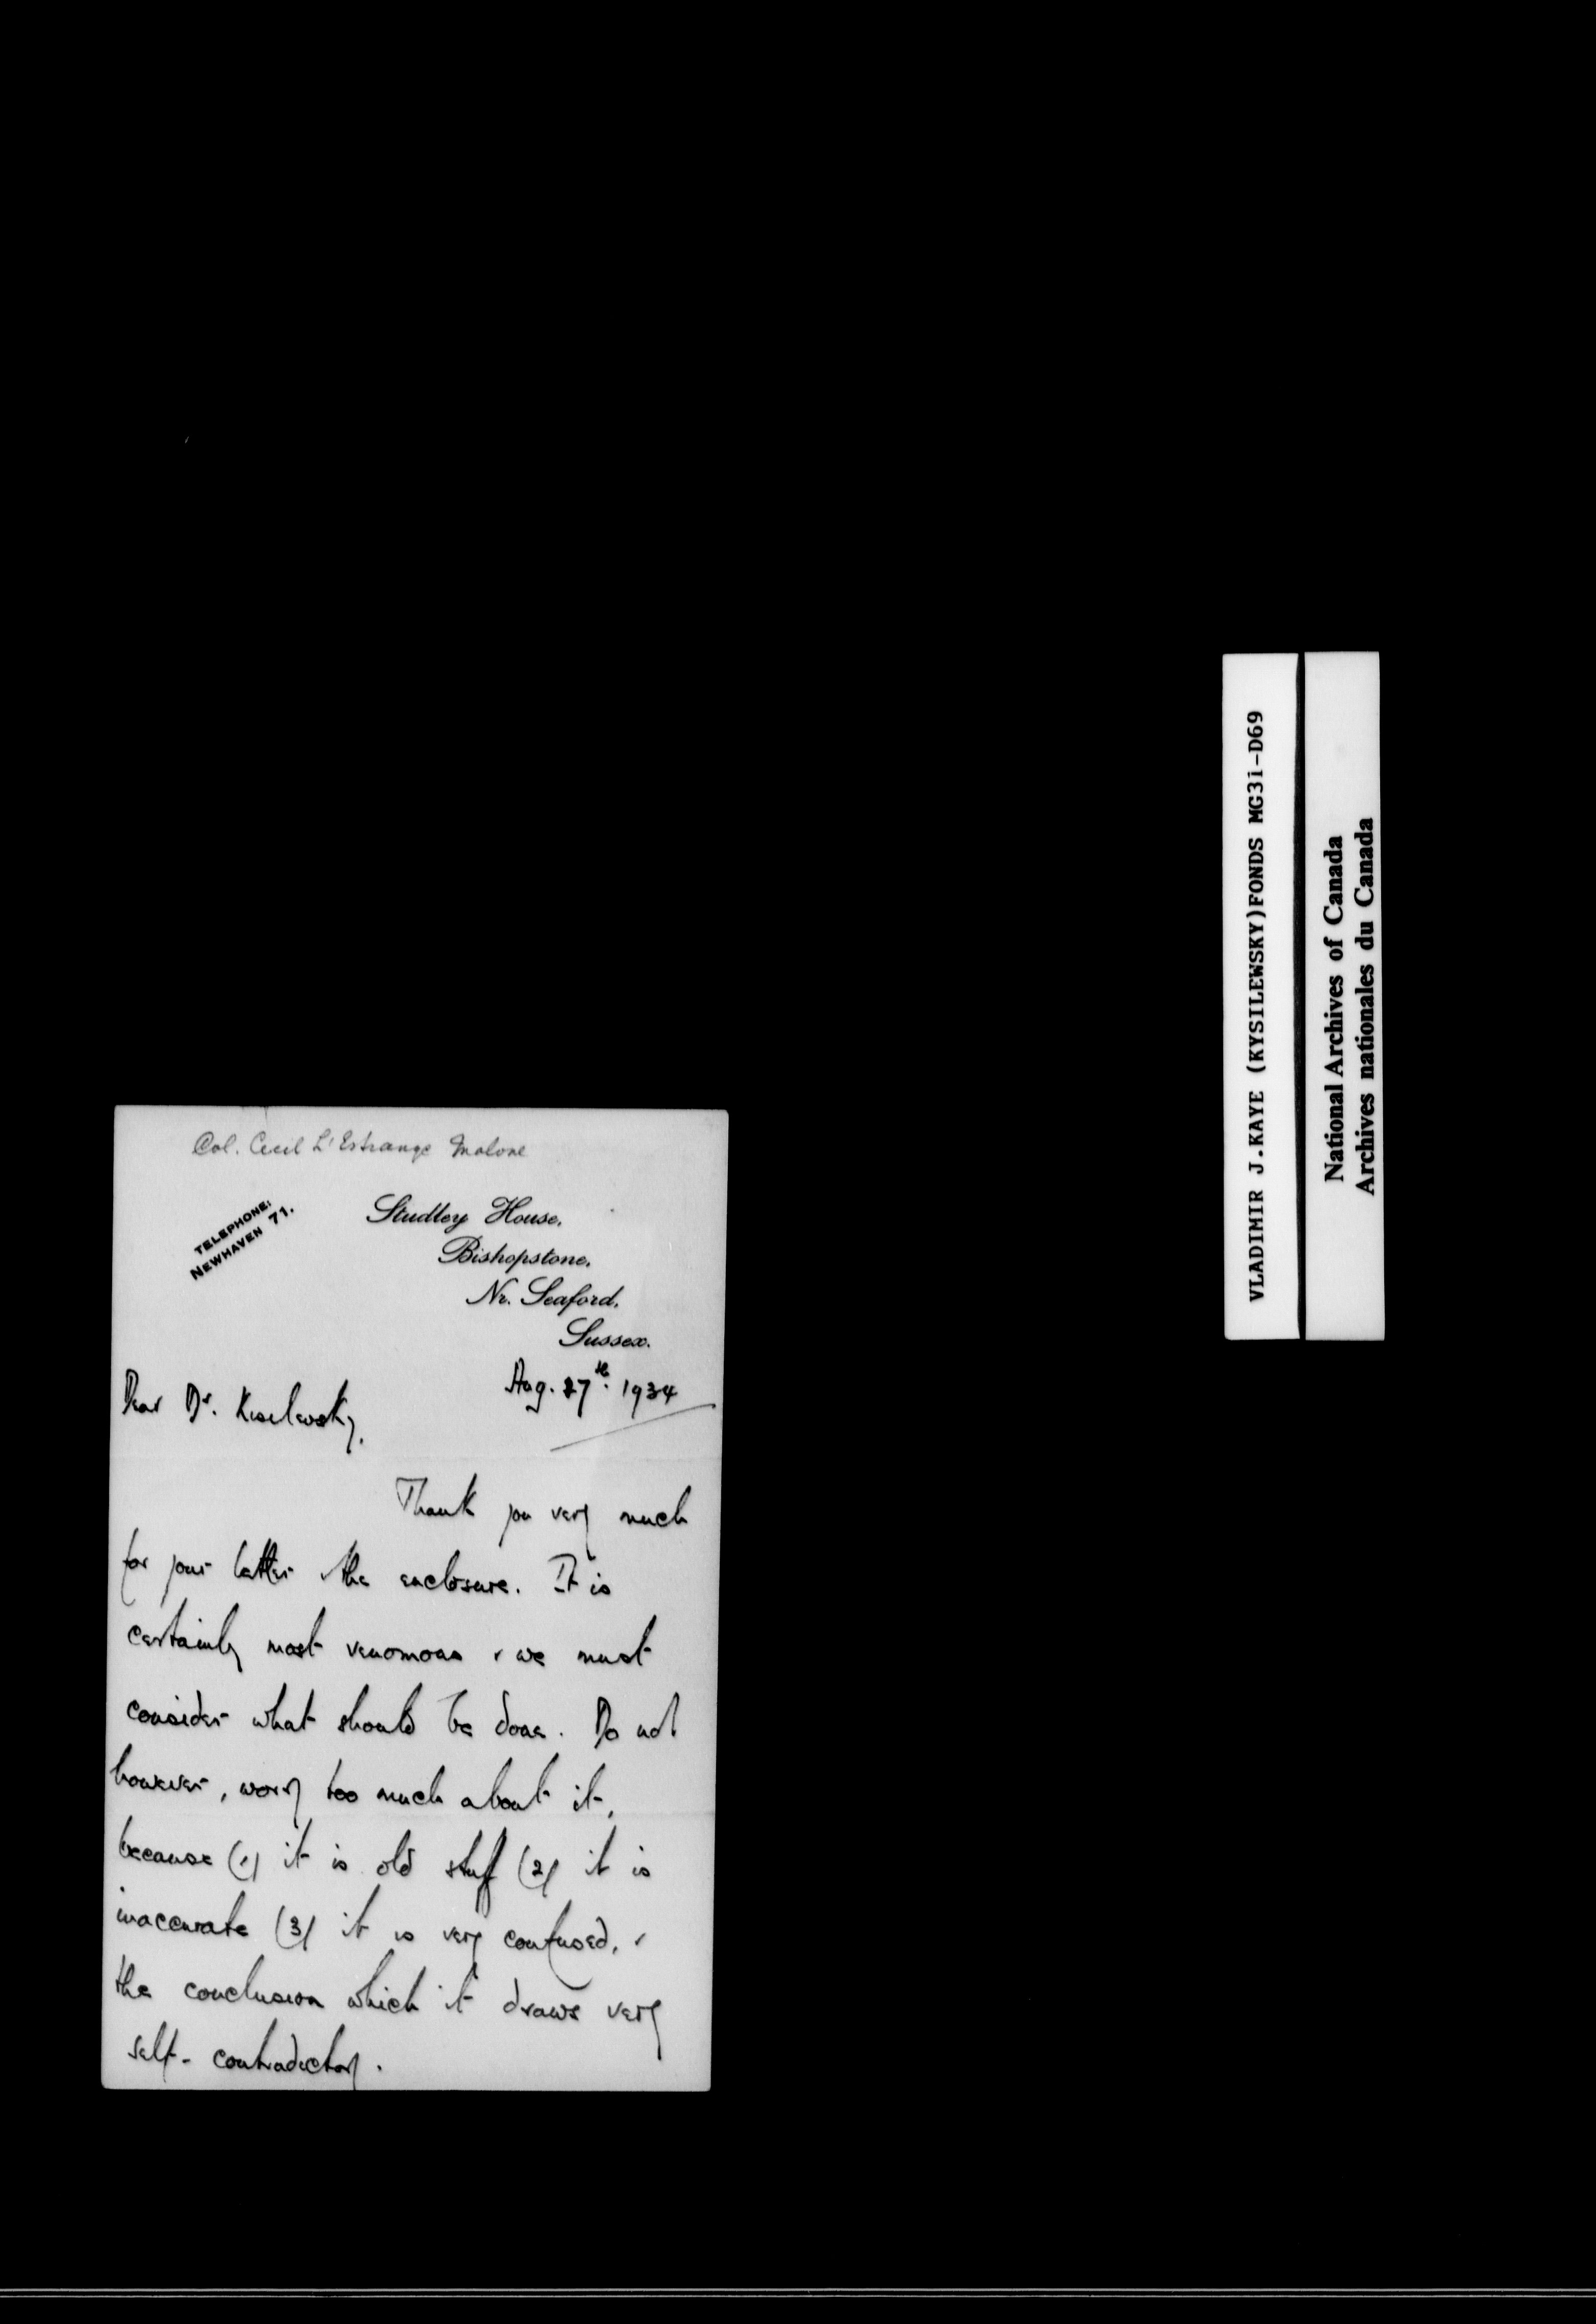 Col. Cecil L'Estrange Malone
TELEPHONE:
NEWHAVEN 71.
Studley House,
Bishopstone,
Nr. Seaford,
Sussex.
Aug. 27th. 1934
Dear Dr. Kiselevsky,
Thank you very much
for your letter & the enclosure. It is
certainly most venomous & we must
consider what should be done. Do not
however, worry too much about it,
because (1) it is old stuff (2) it is
inaccurate (3) it is very confused, &
the conclusion which it draws very
self-contradictory.
VLADIMIR J.KAYE (KYSILEWSKY)FONDS MG31-D69
National Archives of Canada
Archives nationales du Canada